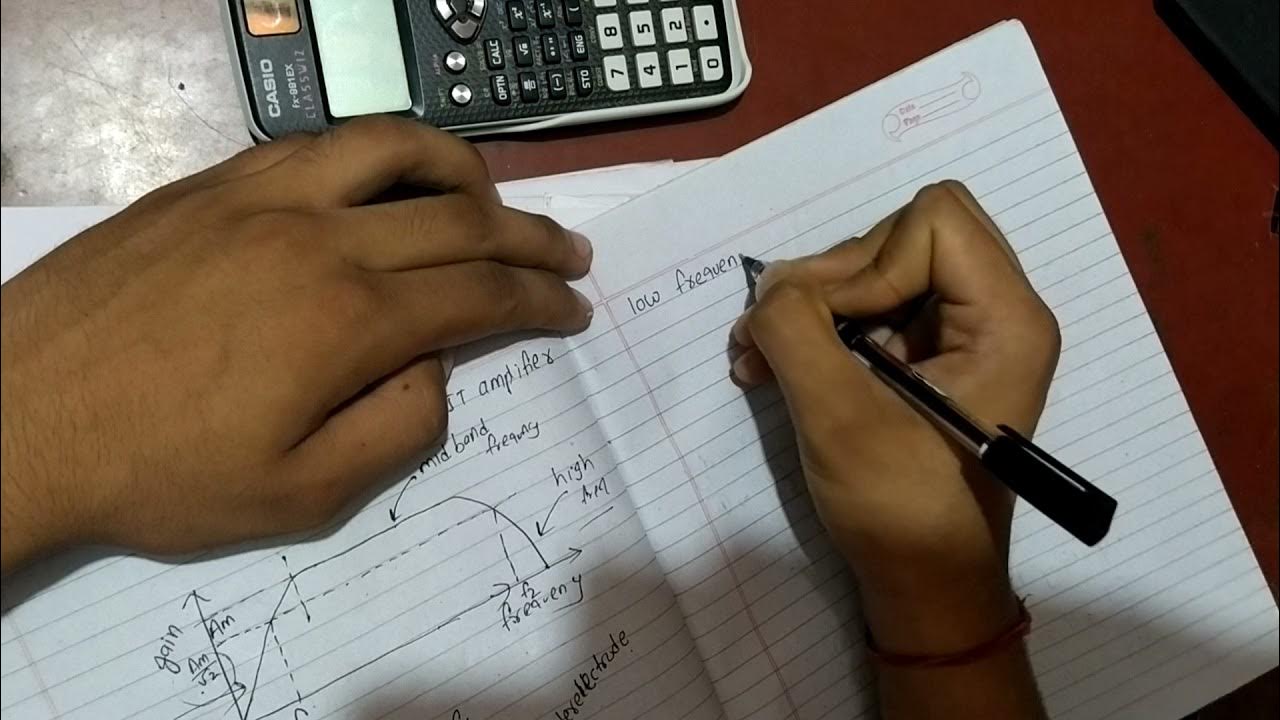 CASIO
fx-991EX
CLASSWIZ
OPTN
CALC
STO
ENG
7 4 1 0
8 5 2 .
Date
Page
low frequen
IT amplifier
mid band
frequncy
high
gain
Am
Am
√2
f2
frequency